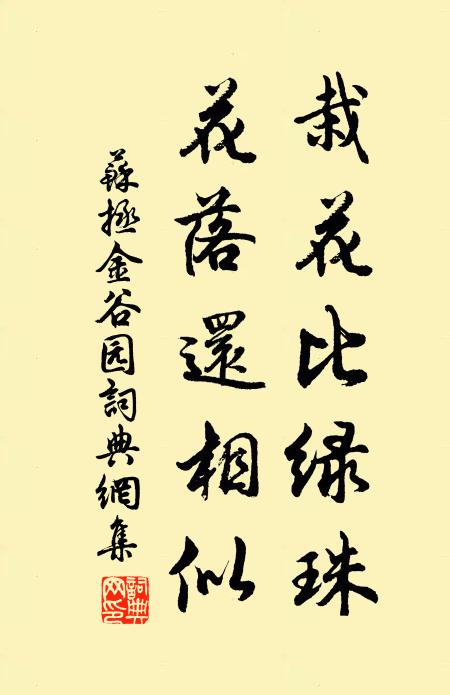 栽花比绿珠
花落還相似
蘇拯金谷园詞典網集
詞典网印